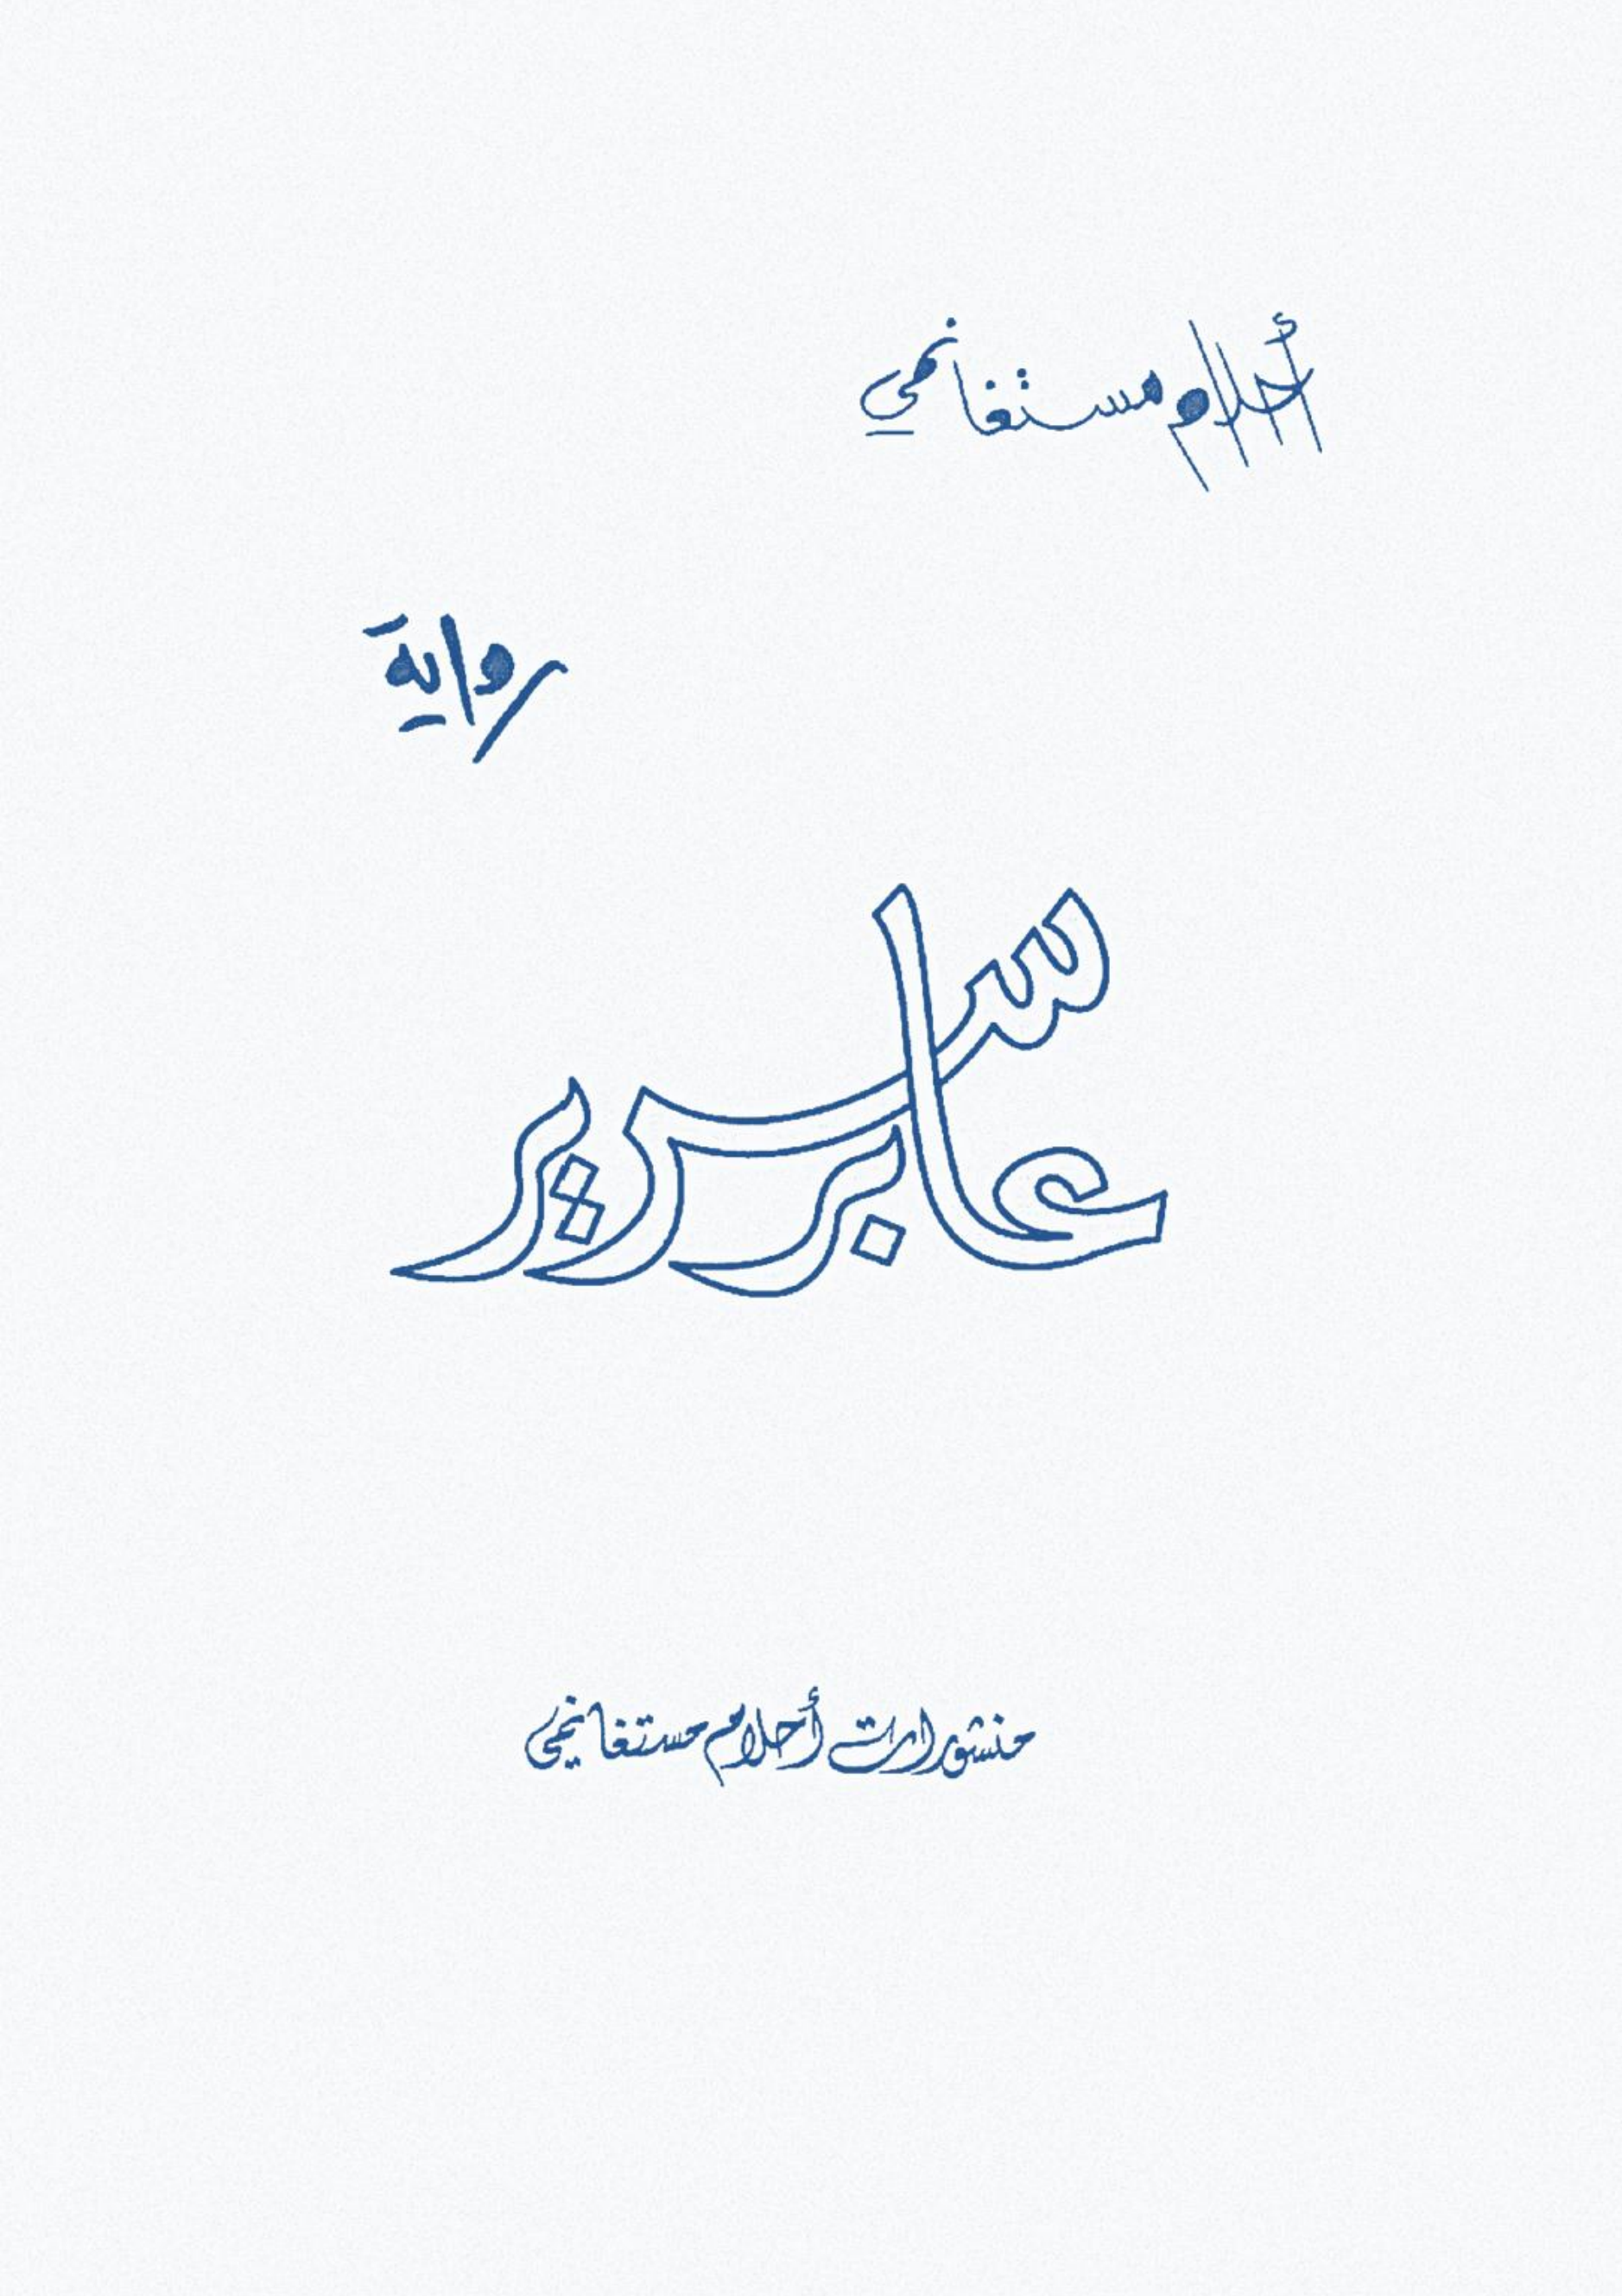 أحلام مستغانمي
رواية
عابر سرير
منشورات أحلام مستغانمي